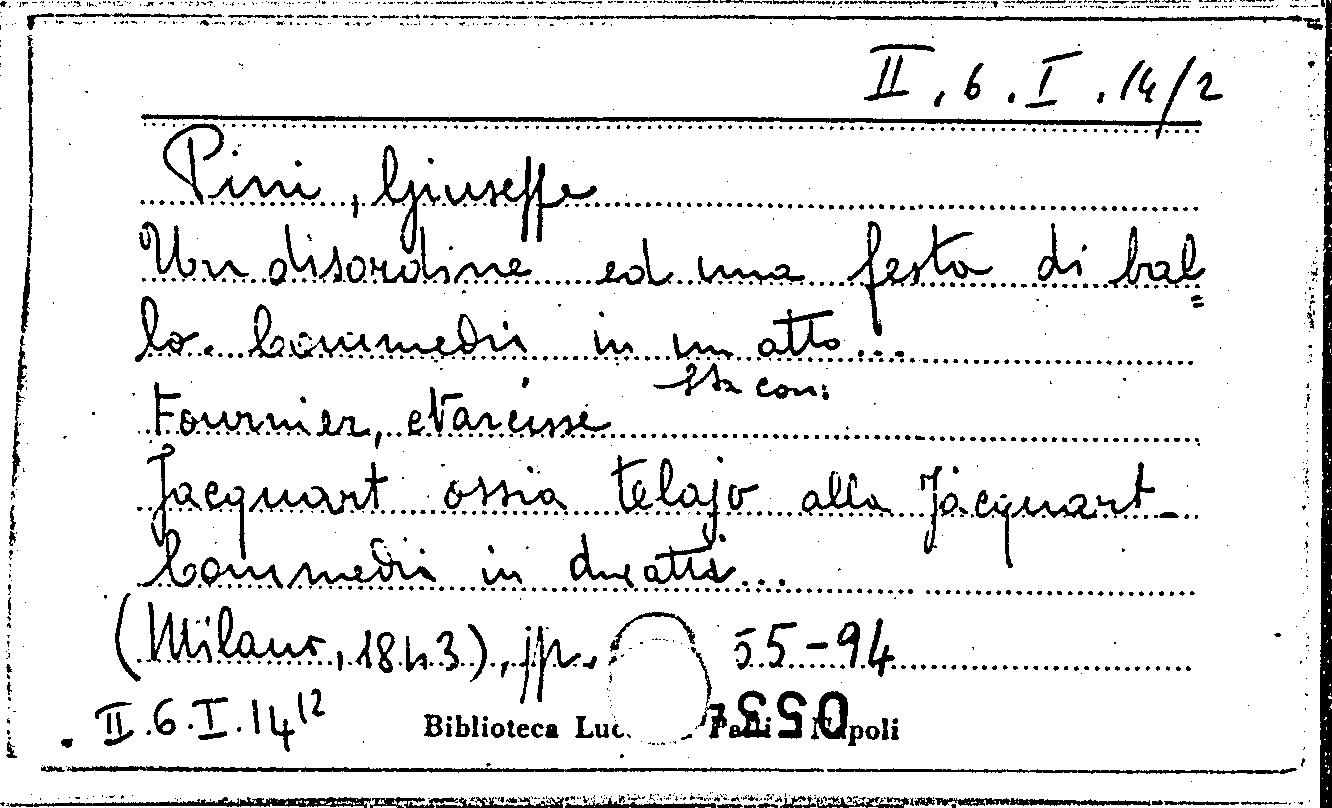 II. 6. I. 14/2
Pini, Giuseppe
Un disordine ed una festa di bal=
lo. Commedia in un atto...
Sta con:
Fournier, Narcisse
Jacquart ossia telajo alla Jacquart.
Commedia in due atti...
(Milano, 1843), pp. 55-94
II. 6. I. 14/2
Biblioteca Luc Palli Napoli